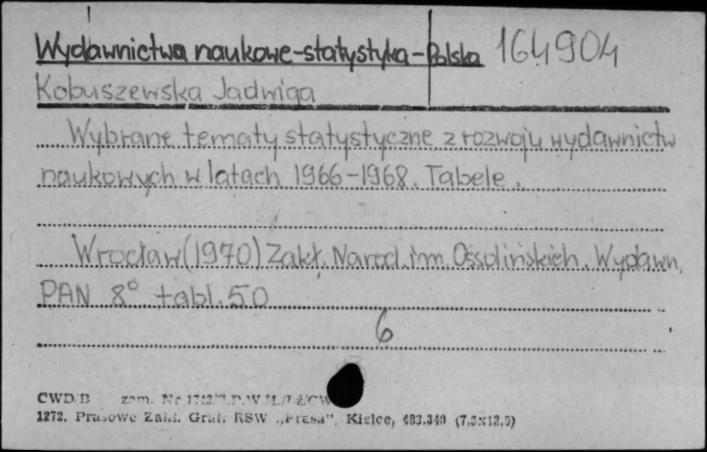 Wydawnictwa naukowe-statystyka-Polska 164904
Kobuszewska Jadwiga
Wybrane tematy statystyczne z rozwoju wydawnictw
naukowych w latach 1966-1968. Tabele.
Wrocław (1970) Zakł. Narod. im. Ossolińskich. Wydawn.
PAN 8° tabl. 50
6
CWD/B zam. Nr
1272. Prasowe Zakł. Graf. RSW „Prasa", Kielce, 483.340 (7,5x12,5)